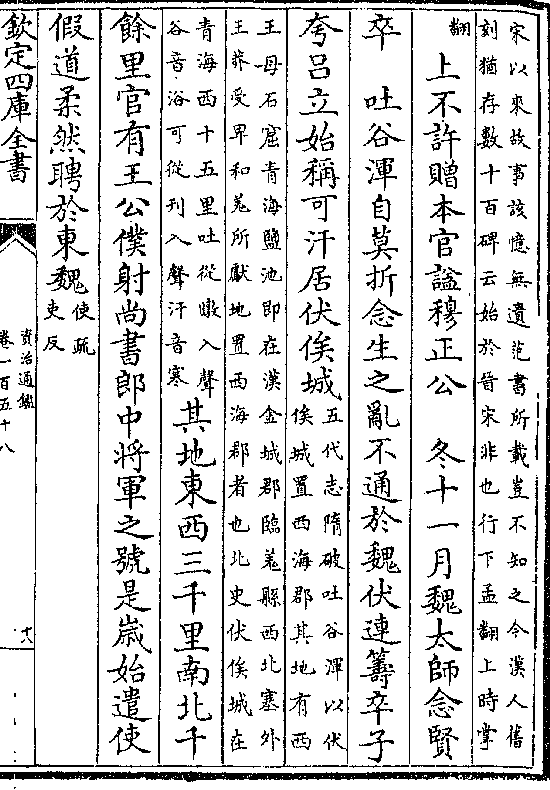 宋以來故事該憶無遺范書所載豈不知之今漢人舊
刻猶存數十百碑云始於晉宋非也行下孟翻上時掌
翻
上不許贈本官諡穆正公　冬十一月魏太師念賢
卒　吐谷渾自莫折念生之亂不通於魏伏連籌卒子
夸呂立始稱可汗居伏俟城
五代志隋破吐谷渾以伏
俟城置西海郡其地有西
王母石窟青海鹽池即在漢金城郡臨羌縣西北塞外
王莽受卑和羌所獻地置西海郡者也北史伏俟城在
青海西十五里吐從暾入聲
谷音浴可從刊入聲汗音寒
其地東西三千里南北千
餘里官有王公僕射尚書郎中將軍之號是歲始遣使
假道柔然聘於東魏
使疏
吏反
欽定四庫全書
資治通鑑
卷一百五十八
十八